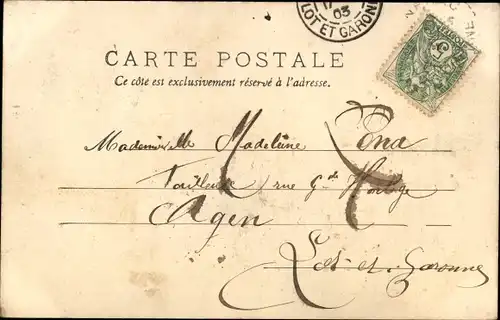 03
LOT ET GARONNE
5
CARTE POSTALE
Ce côté est exclusivement réservé à l'adresse.
Mademoiselle Madeleine
rue Gde Horloge
Agen
Lot-et-Garonne